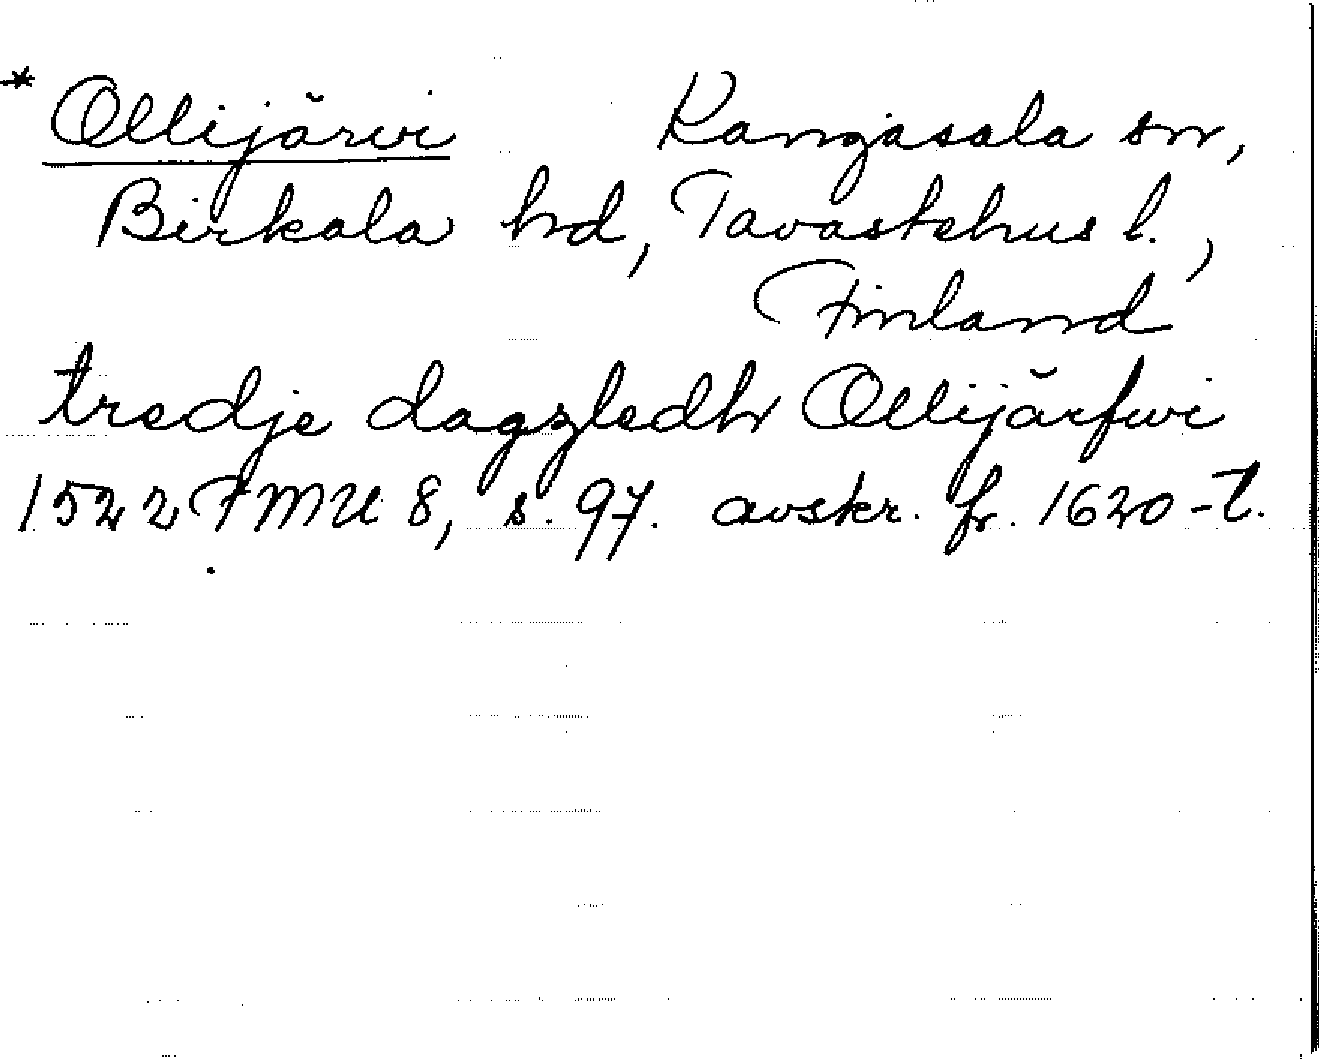 * Ollijärvi Kangasala sn,
Birkala hd, Tavastehus l.,
Finland
tredje dagzledh Ollijärfwi
1522 FMU 8, s. 97. avskr. fr. 1620-t.